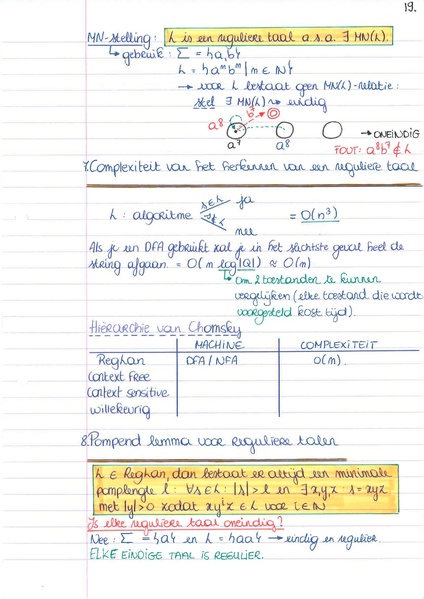 19.
MN-stelling: L is een reguliere taal a.s.a. ∃ MN(L).
↳ gebruik: Σ = {a,b}
L = {aᵐbᵐ | m ∈ ℕ}
→ voor L bestaat geen MN(L)-relatie:
stel ∃ MN(L) ⇝ eindig
a⁸ b⁷
a⁷ a⁸ → ONEINDIG
FOUT: a⁸b⁷ ∉ L
7. Complexiteit van het herkennen van een reguliere taal
s∈L ja
L: algoritme = O(n³)
s∉L nee
Als je een DFA gebruikt zal je in het slechtste geval heel de
string afgaan = O(n log|Q|) ≈ O(n)
↳ om 2 toestanden te kunnen
vergelijken (elke toestand die wordt
voorgesteld kost tijd).
Hiërarchie van Chomsky
MACHINE COMPLEXITEIT
Reghan DFA/NFA O(n).
Context Free
Context sensitive
willekeurig
8. Pompend lemma voor reguliere talen
L ∈ Reghan, dan bestaat er altijd een minimale
pomplengte l: ∀s∈L: |s|>l en ∃x,y,z s=xyz
met |y|>0 zodat xyⁱz ∈ L voor i∈ℕ
Is elke reguliere taal oneindig?
Nee: Σ = {a} en L = {aa} → eindig en regulier.
ELKE EINDIGE TAAL IS REGULIER.